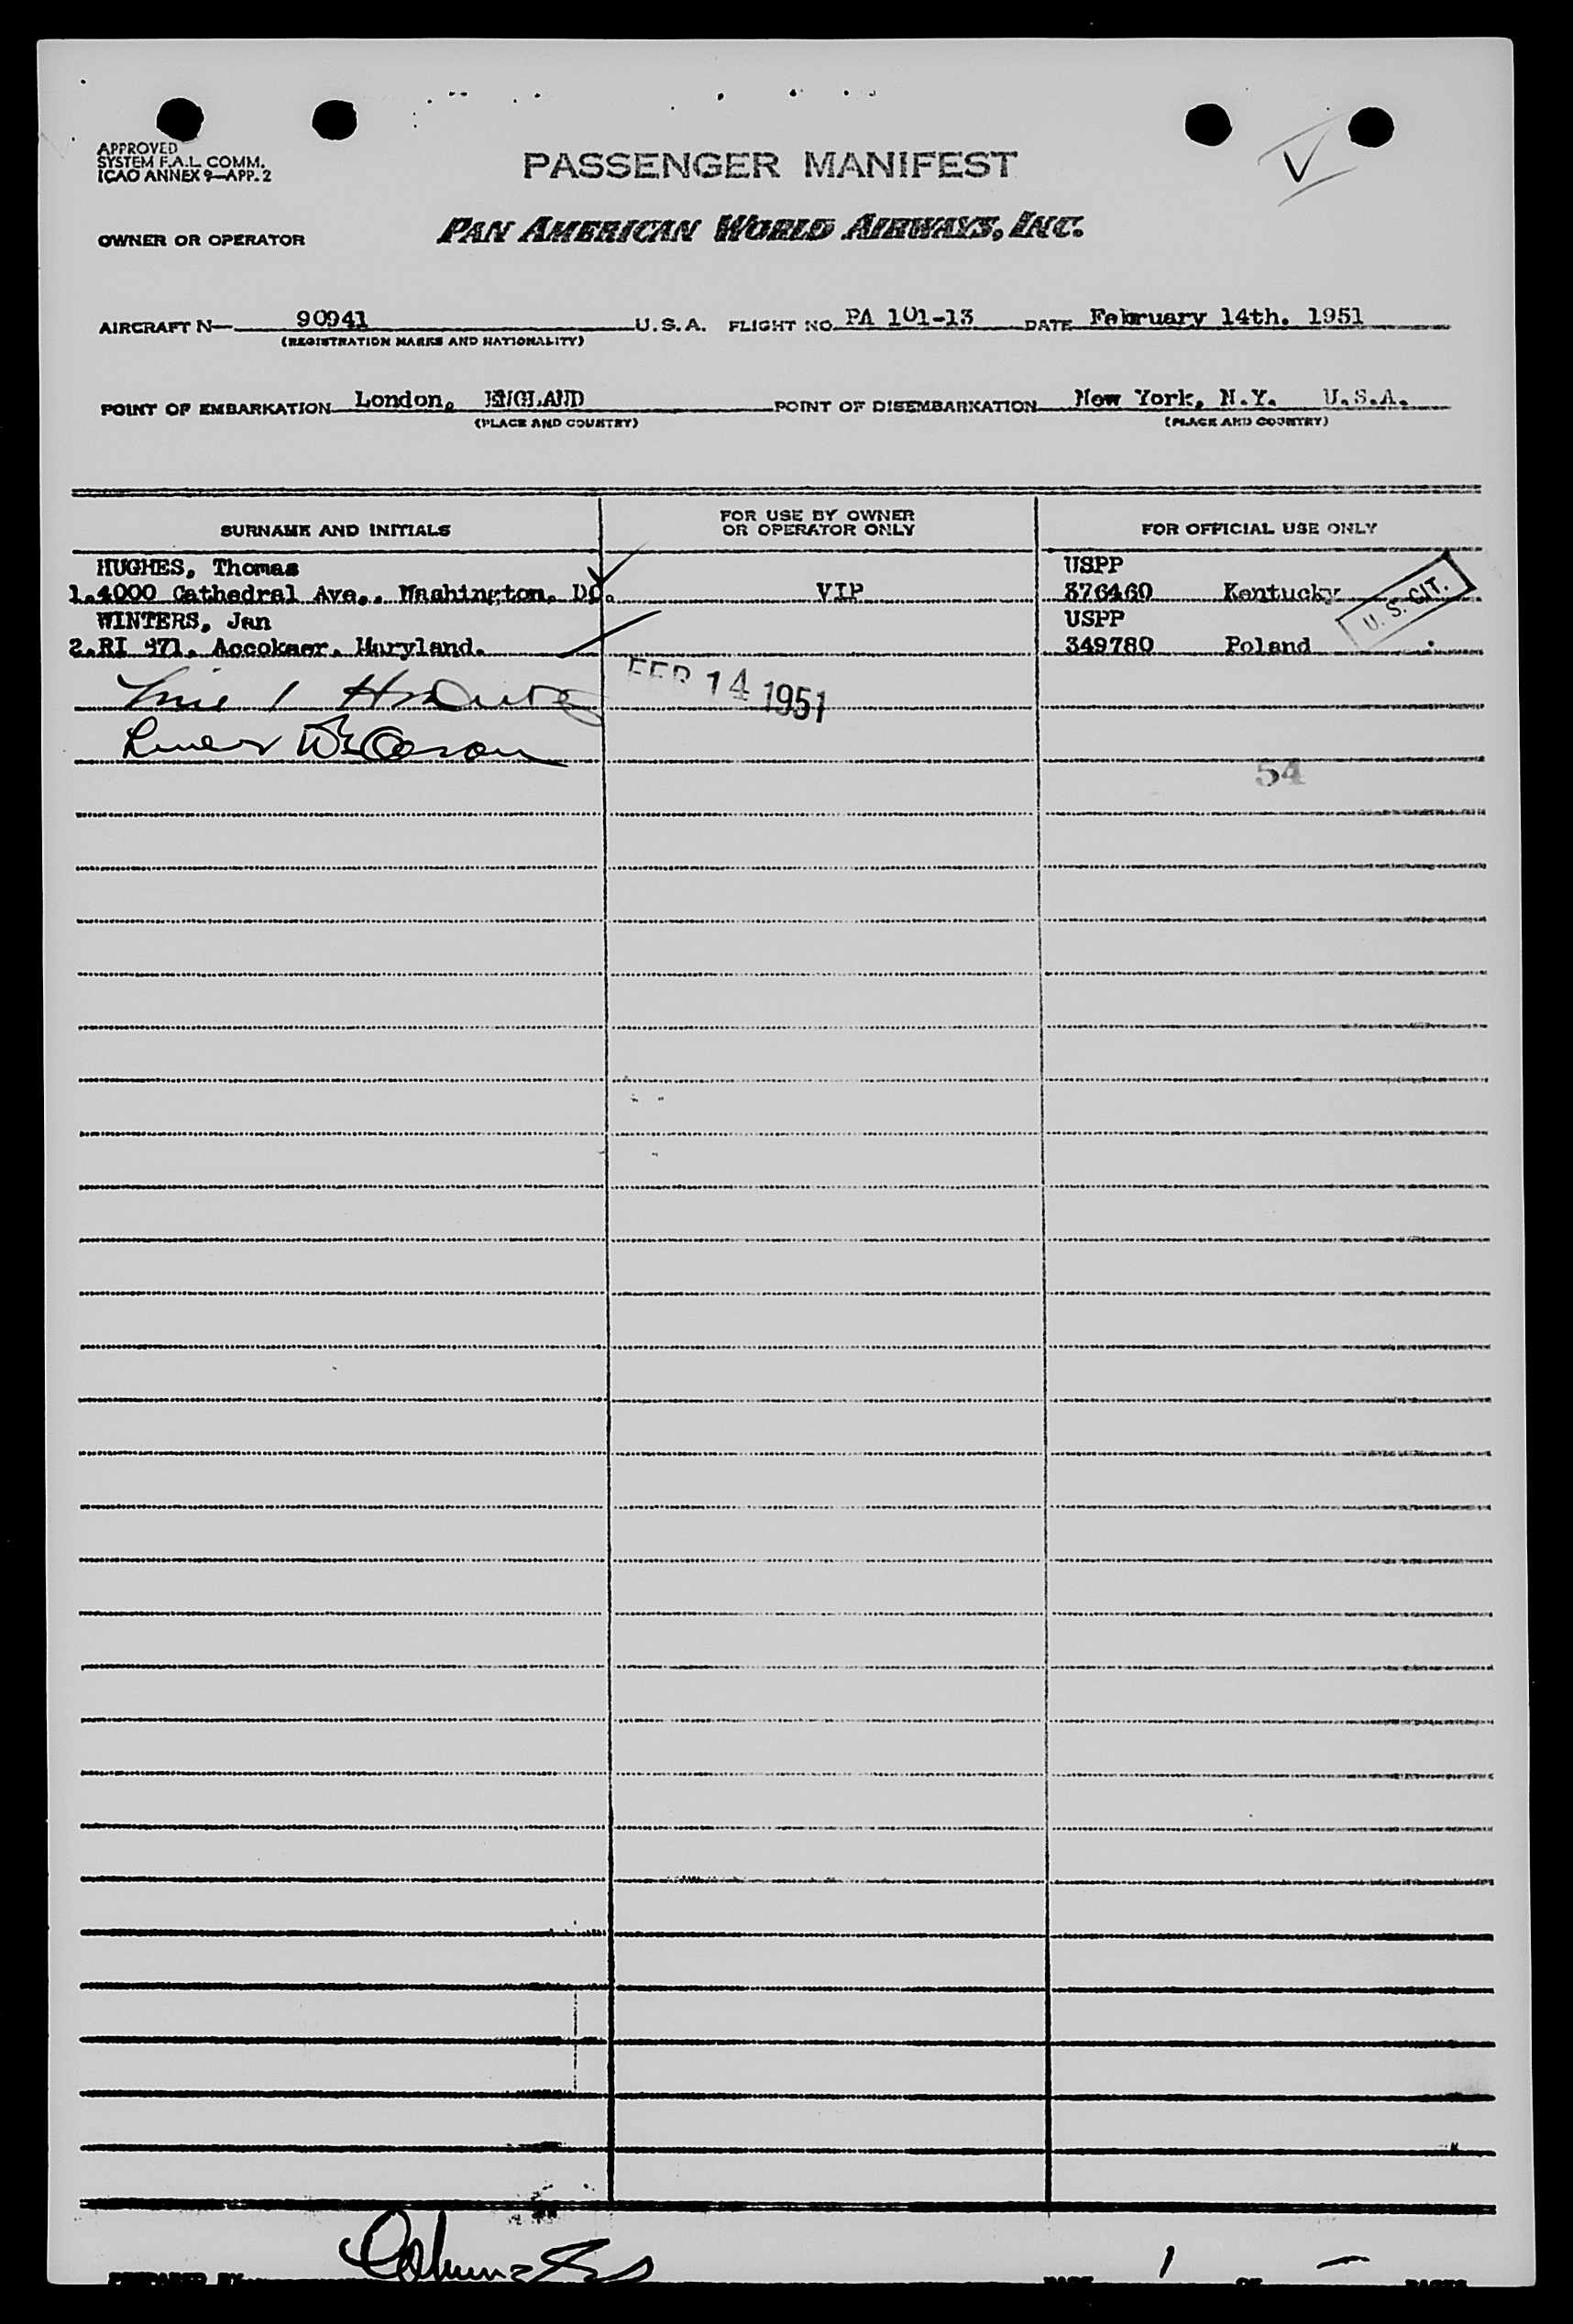 APPROVED
SYSTEM F.A.L. COMM.
ICAO ANNEX 9—APP. 2
PASSENGER MANIFEST
V
OWNER OR OPERATOR
PAN AMERICAN WORLD AIRWAYS, INC.
AIRCRAFT N— 90941 U.S.A. FLIGHT NO. PA 101-13 DATE February 14th. 1951
(REGISTRATION MARKS AND NATIONALITY)
POINT OF EMBARKATION London, ENGLAND POINT OF DISEMBARKATION New York, N.Y. U.S.A.
(PLACE AND COUNTRY) (PLACE AND COUNTRY)
SURNAME AND INITIALS FOR USE BY OWNER OR OPERATOR ONLY FOR OFFICIAL USE ONLY
HUGHES, Thomas USPP
1.4000 Cathedral Ave., Washington, DC. VIP 376460 Kentucky U. S. CIT.
WINTERS, Jan USPP
2.RI 371, Accokaer, Maryland. 349780 Poland
FEB 14 1951
54
PREPARED BY PAGE 1 OF PAGES